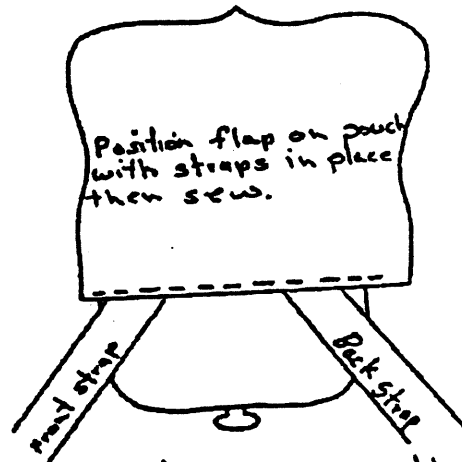 Position flap on pouch
with straps in place
then sew.
Front strap
Back strap